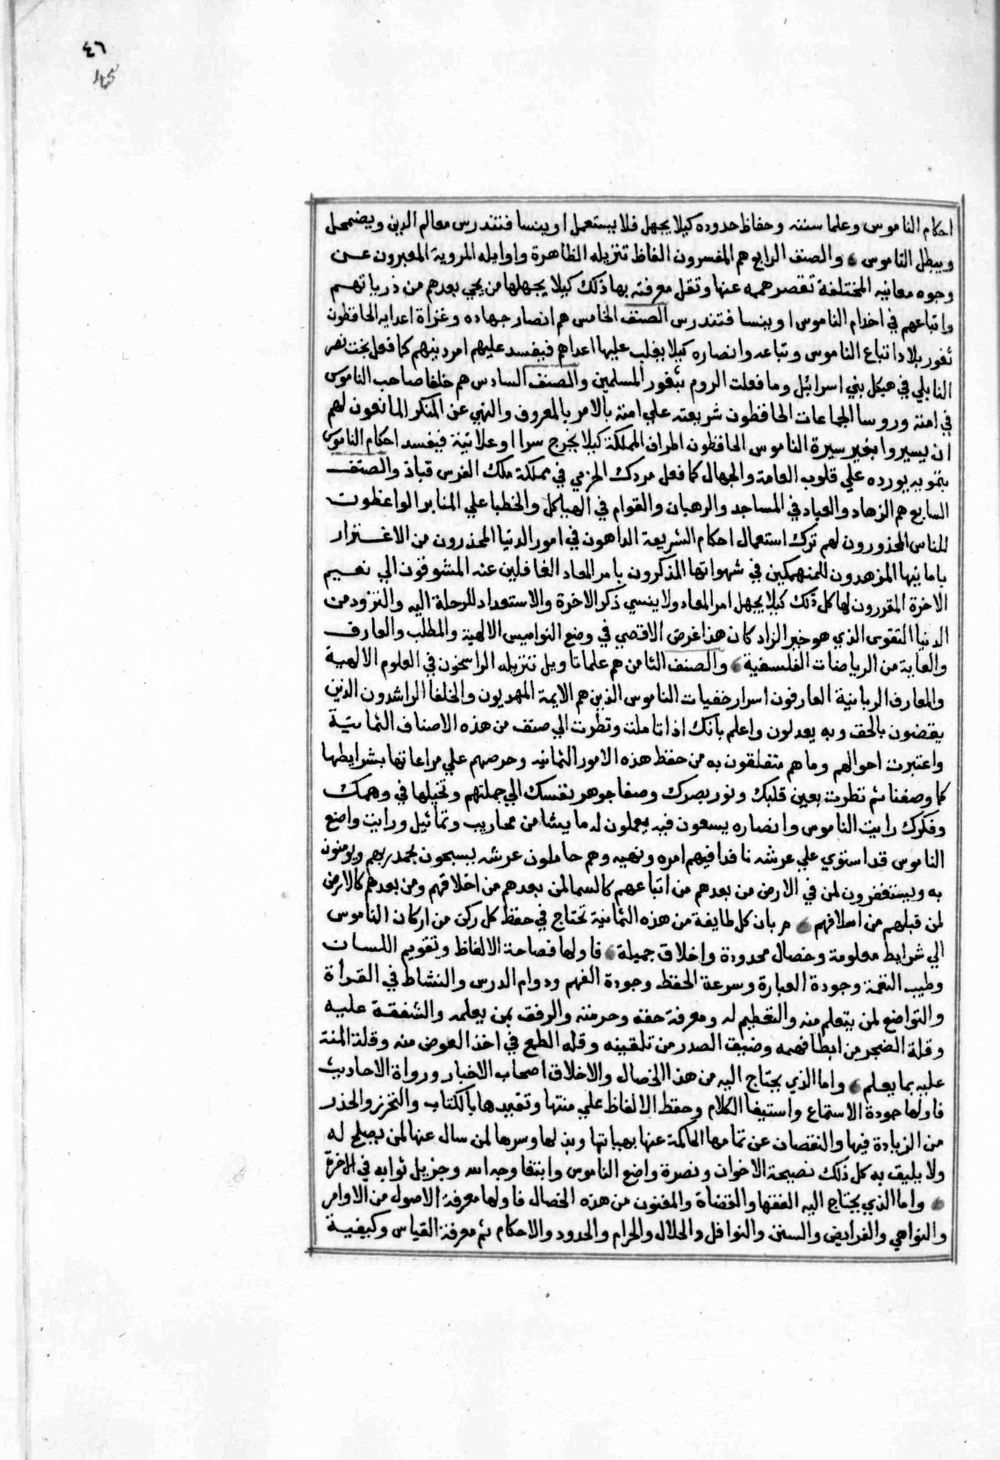 ٤٦
احكام الناموس وعلما سننه وحفاظ حدوده كيلا يجهل فلا يستعمل او ينسا فتندرس معالم الدين ويضمحل
ويبطل الناموس والصنف الرابع هم المفسرون الفاظ تنزيله الظاهرة واوايله المروية المعبرون عن
وجوه معانيه المختلفة تقصر هممه عنها وتقل معرفته بها ذلك كيلا يجهلها من يجي بعدهم من ذرياتهم
واتباعهم في احذام الناموس او ينسا فتندرس الصنف الخامس هم انصار جهاده وغزاة اعدايه الحافظون
ثغور بلاد اتباع الناموس وتباعه وانصاره كيلا يغلب عليها اعداهم فيفسد عليهم امر دينهم كما فعل بخت نصر
البابلي في هيكل بني اسرائيل وما فعلت الروم بثغور المسلمين والصنف السادس هم خلفا صاحب الناموس
في امته وروسا الجماعات الحافظون شريعته علي امته بالامر بالمعروف والنهي عن المنكر المانعون لهم
ان يسيروا بغير سيرة الناموس الحافظون اطراف المملكة كيلا يخرج سرا او علانية فيفسد احكام الناموس
بتمويه يورده علي قلوب العامة والجهال كما فعل مزدك الخرمي في مملكة ملك الفرس قباذ والصنف
السابع هم الزهاد والعباد في المساجد والرهبان والقوام في الهياكل والخطبا علي المنابر الواعظون
للناس المحذورون لهم ترك استعمال احكام الشريعة الذاهون في امور الدنيا المحذرون من الاغترار
بامانيها المزهدون للمنهمكين في شهواتها المذكرون بامر المعاد الغافلين عنه المشوقون الي نعيم
الاخرة المقررون لها كل ذلك كيلا يجهل امر المعاد ولا ينسي ذكر الاخرة والاستعداد للرحلة اليه والتزود من
الدنيا التقوي الذي هو خير الزاد كان هذا غرض الاقصي في وضع النواميس الالهية والمطلب والعارف
والغاية من الرياضات الفلسفية والصنف الثامن هم علما تاويل تنزيله الراسخون في العلوم الالهية
والمعارف الربانية العارفون اسرار خفيات الناموس الذين هم الايمة المهديون والخلفا الراشدون الذين
يقضون بالحق وبه يعدلون واعلم بانك اذا تاملت ونظرت الي صنف من هذه الاصناف الثمانية
واعتبرت احوالهم وما هم متعلقون به من حفظ هذه الامور الثمانيه وحرصهم علي مراعاتها بشرايطها
كما وصفنا ثم نظرت بعين قلبك ونور بصرك وصفا جوهر نفسك الي جملتهم وتخيلها في وهمك
وفكرك رايت الناموس وانصاره يسعون فيه يعملون له ما يشا من محاريب وتماثيل ورايت واضع
الناموس قد استوي علي عرشه نافدا فيهم امره ونهيه وهم حاملون عرشه يسبحون بحمد ربهم ويومنون
به ويستغفرون لمن في الارض من بعدهم من اتباعهم كالسما لمن بعدهم من اخلاقهم ومن بعدهم كالارض
لمن قبلهم من اسلافهم مر بان كل طايفة من هذه الثمانية تحتاج في حفظ كل ركن من اركان الناموس
الي شرايط معلومة وخصال محدودة واخلاق جميلة فاولها فصاحة الالفاظ وتقويم اللسان
وطيب النغمة وجودة العبارة وسرعة الحفظ وجودة الفهم ودوام الدرس والنشاط في القراة
والتواضع لمن يتعلم منه والتعظيم له ومعرفة حقه وحرمته والرفق بمن يعلمه والشفقة عليه
وقلة الضجر من ابطا فهمه وضيق الصدر من تلقينه وقله الطمع في اخذ العوض منه وقلة المنة
عليه بما يعلم واما الذي يحتاج اليه من هذ الخصال والاخلاق اصحاب الاخبار ورواة الاحاديث
فاولها جودة الاستماع واستيفا الكلام وحفظ الالفاظ علي متنها وتقييدها بالكتاب والتحرز والحذر
من الزيادة فيها والنقصان عن تمامها الحاكية عنها بهيأتها وبذلها وسرها لمن سال عنها لمن يصلح له
ولا يليق به كل ذلك نصيحة الاخوان ونصرة واضع الناموس وابتغا وجه الله وجزيل ثوابه في الاخرة
واما الذي يحتاج اليه الفقها والقضاة والمفتون من هذه الخصال فاولها معرفة الاصول من الاوامر
والنواهي والفرايض والسنن والنوافل والحلال والحرام والحدود والاحكام ثم معرفة القياس وكيفية